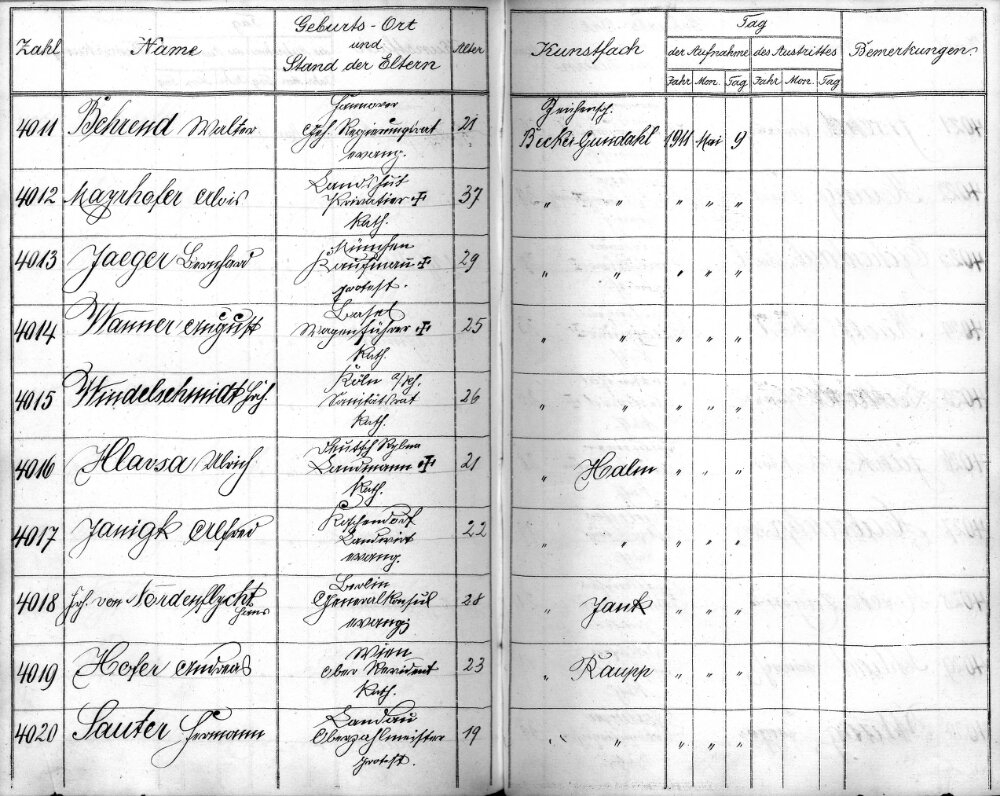 Zahl Name Geburts-Ort und Stand der Eltern Alter Kunstfach Tag Bemerkungen.
der Aufnahme des Austrittes
Jahr Mon. Tag Jahr Mon. Tag
Hannover
4011 Behrend Walter Geh. Regierungsrat 21 Zeichensch. Becker-Gundahl 1911 Mai 9
evang.
Landshut
4012 Mayrhofer Alois Privatier ✠ 37 " " " " "
kath.
München
4013 Jaeger Bernhard Kaufmann ✠ 29 " " " " "
protest.
Basel
4014 Wanner August Wagenführer ✠ 25 " " " " "
kath.
Köln a/rh.
4015 Windelschmidt Hch. Sanitätsrat 26 " " " " "
kath.
Deutsch
4016 Hlavsa Ulrich Landmann ✠ 21 " Halm " " "
kath.
4017 Janigk Alfred Landwirt 22 " " " "
evang.
Berlin
4018 Frh. von Nordenflycht Hans Generalkonsul 28 " Jank " " "
evang.
Wien
4019 Hofer Andreas Ober Revident 23 " Raupp " " "
kath.
Landau
4020 Sauter Hermann Oberzahlmeister 19 " " " " "
protest.